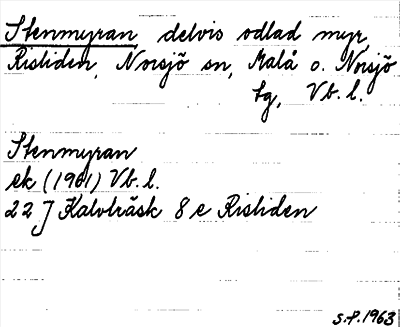 Stenmyran delvis odlad myr,
Risliden, Norsjö sn, Malå o. Norsjö
tg, Vb. l.
Stenmyran
ek (1961) Vb. l.
22 J Kalvträsk 8 e Risliden
S.P. 1963